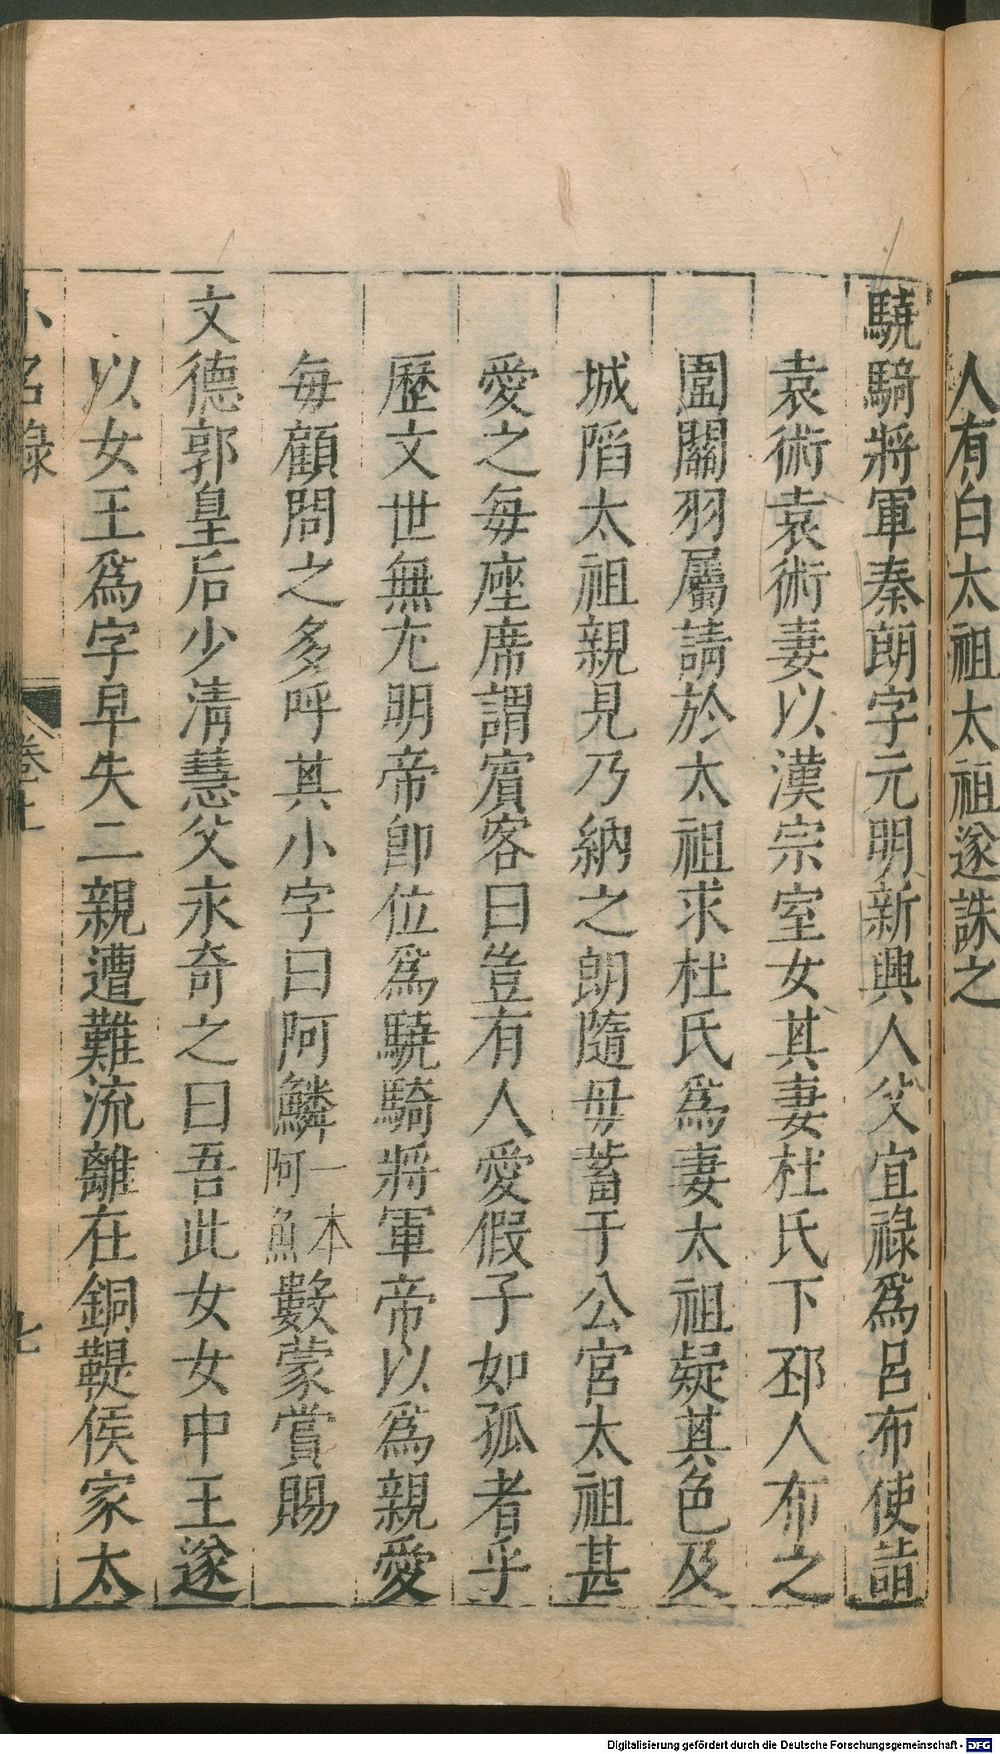 人有白太祖太祖遂誅之
驍騎將軍秦朗字元明新興人父宜祿爲呂布使詣
袁術袁術妻以漢宗室女其妻杜氏下邳人布之
圍關羽屬請於太祖求杜氏爲妻太祖疑其色及
城陷太祖親見乃納之朗隨母蓄于公宮太祖甚
愛之每座席謂賓客曰豈有人愛假子如孤者乎
歷文世無尤明帝卽位爲驍騎將軍帝以爲親愛
每顧問之多呼其小字曰阿鱗一本阿魚數蒙賞賜
文德郭皇后少清慧父永奇之曰吾此女女中王遂
以女王爲字早失二親遭難流離在銅鞮侯家太
小名錄
卷上
七
Digitalisierung gefördert durch die Deutsche Forschungsgemeinschaft - DFG